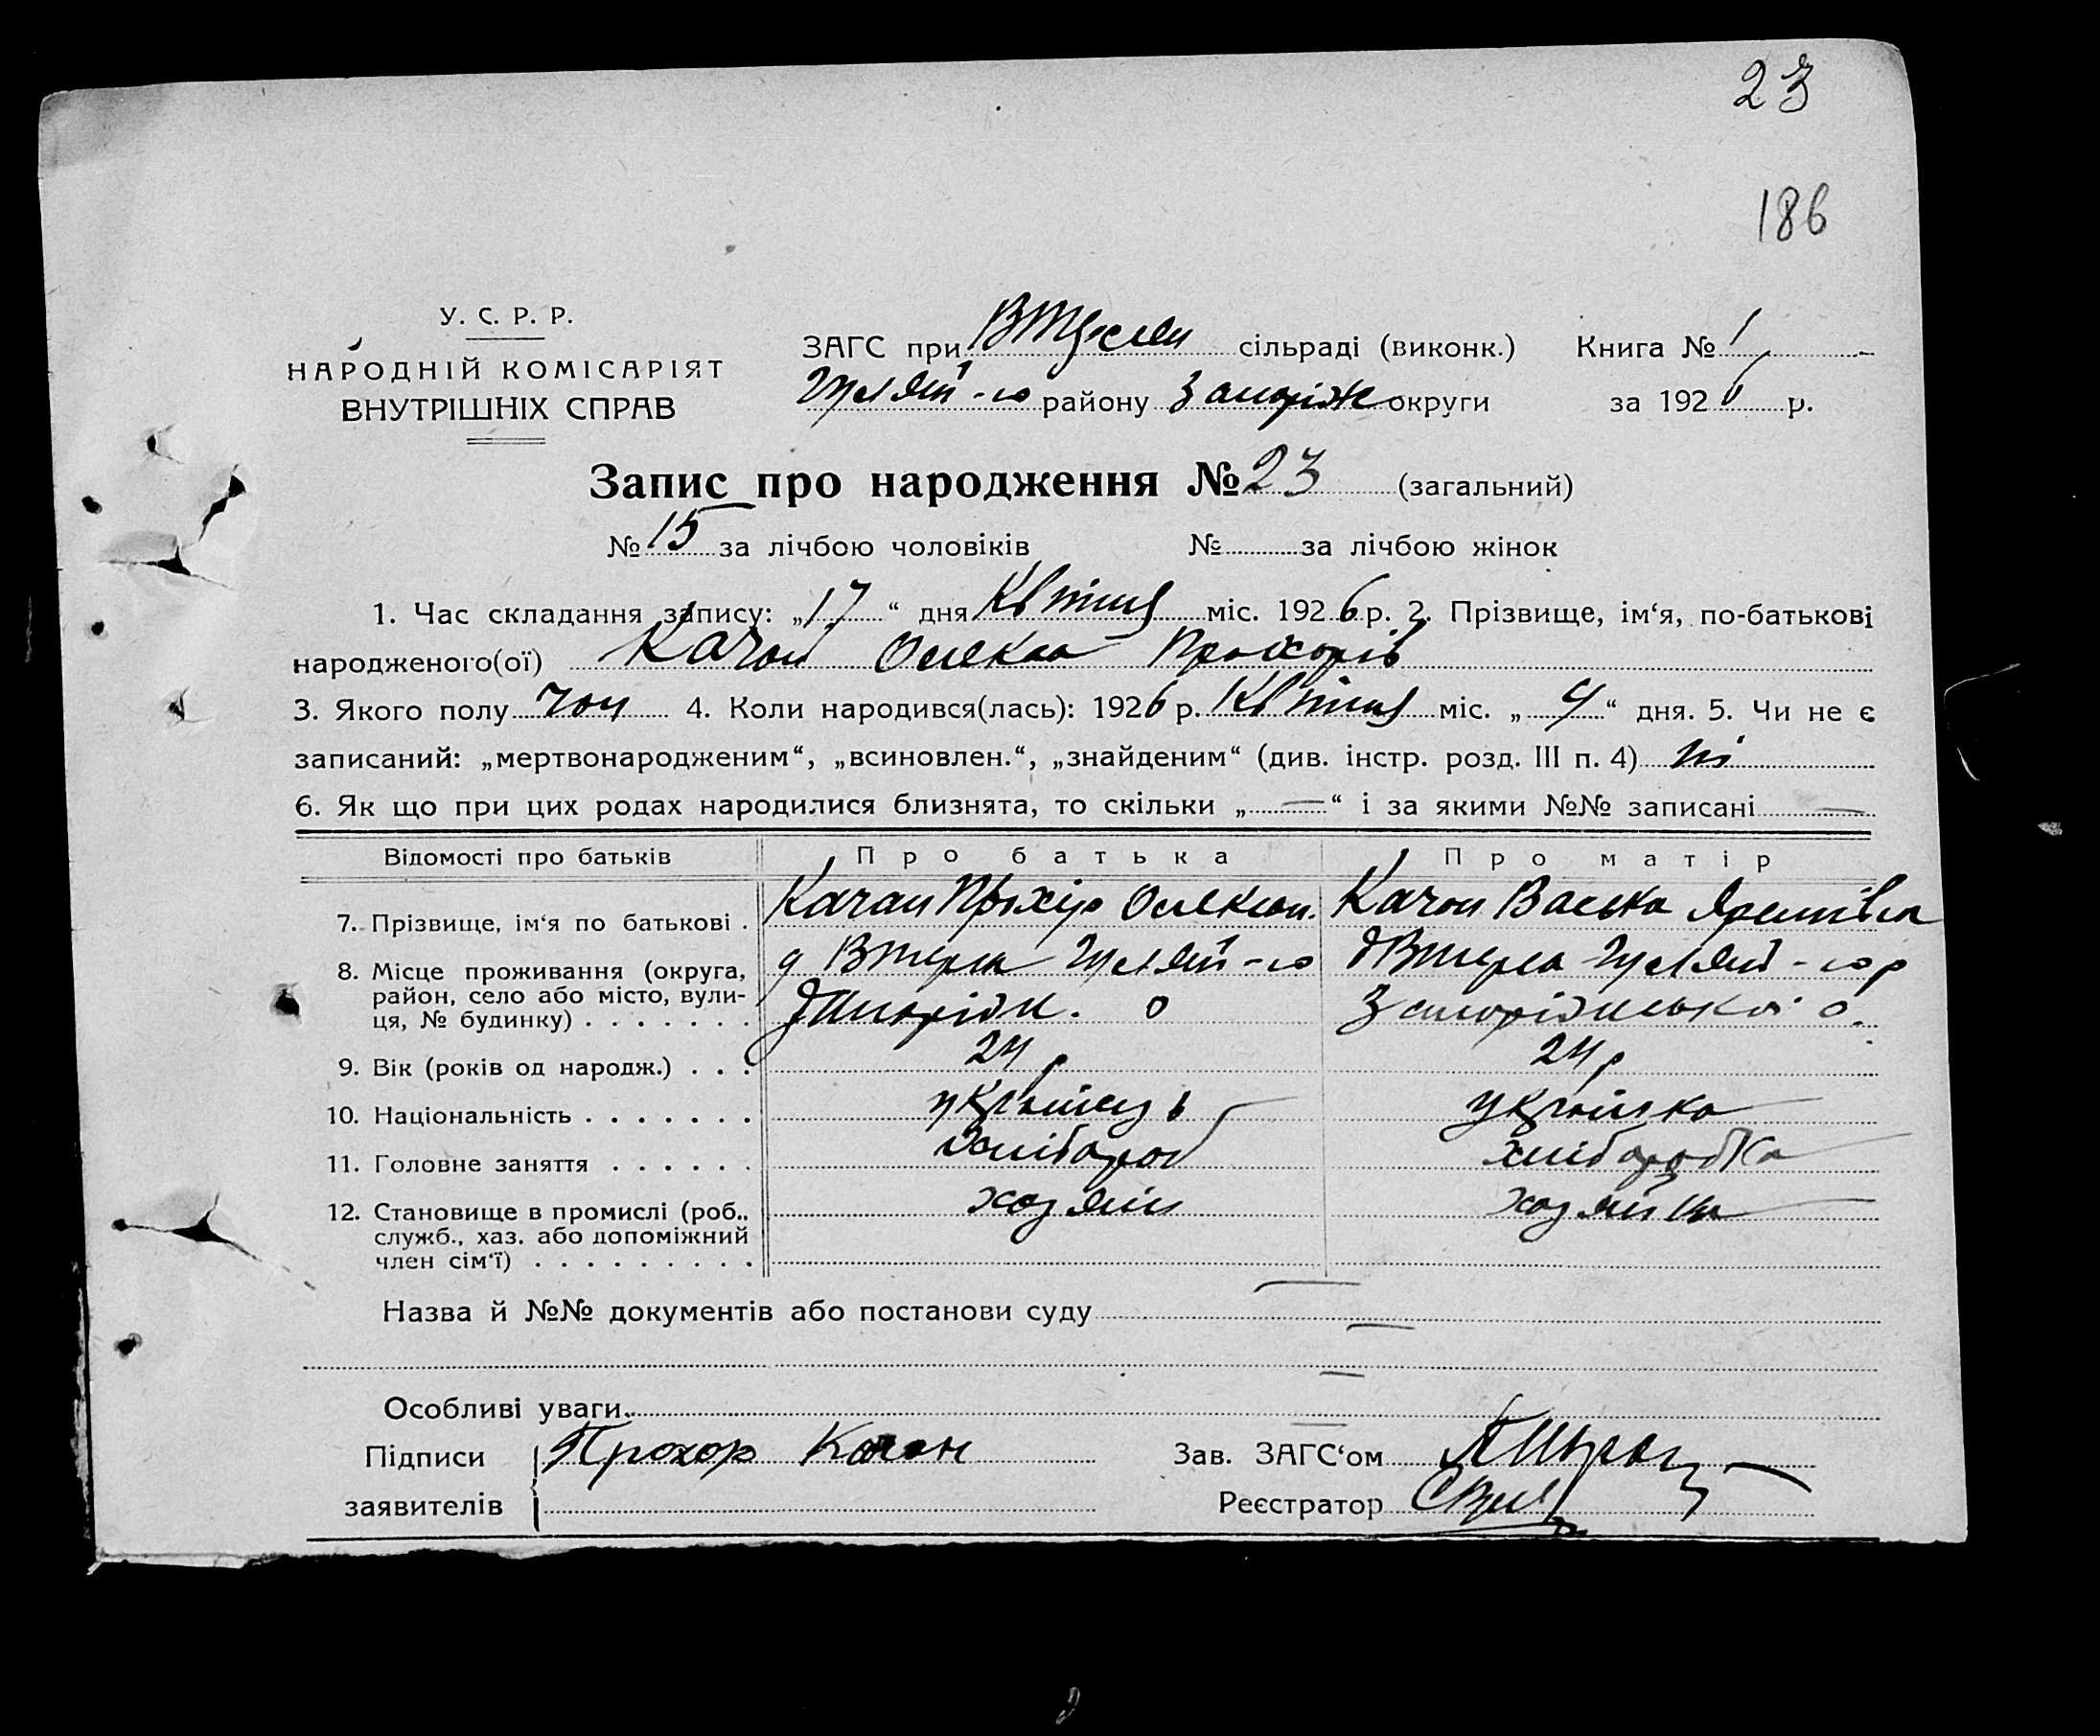 23
186
У. С. Р. Р.
НАРОДНІЙ КОМІСАРІЯТ
ВНУТРІШНІХ СПРАВ
ЗАГС при сільраді (виконк.) Книга № 1
району Запоріж округи за 1926 р.
Запис про народження № 23 (загальний)
№ 15 за лічбою чоловіків № за лічбою жінок
1. Час складання запису: „17“ дня Квітня міс. 1926 р. 2. Прізвище, ім‘я, по-батькові
народженого(ої) Качан Олекса Прохорів
3. Якого полу чол 4. Коли народився(лась): 1926 р. Квітня міс. „ “ дня. 5. Чи не є
записаний: „мертвонародженим“, „всиновлен.“, „знайденим“ (див. інстр. розд. III п. 4) ні
6. Як що при цих родах народилися близнята, то скільки „—“ і за якими №№ записані —
Відомості про батьків Про батька Про матір
7. Прізвище, ім‘я по батькові . Качан Прохір Олексан. Качан Васька
8. Місце проживання (округа,
район, село або місто, вули-
ця, № будинку) . . . . . . . Запоріж. о Запоріжської о.
9. Вік (років од народж.) . . . 24 р 24 р
10. Національність . . . . . . . українець українка
11. Головне заняття . . . . . . хлібороб хліборобка
12. Становище в промислі (роб., хозяїн хозяйка
служб., хаз. або допоміжний
член сім‘ї) . . . . . . . . .
Назва й №№ документів або постанови суду —
Особливі уваги.
Підписи Прохор Качан Зав. ЗАГС‘ом
заявителів Реєстратор